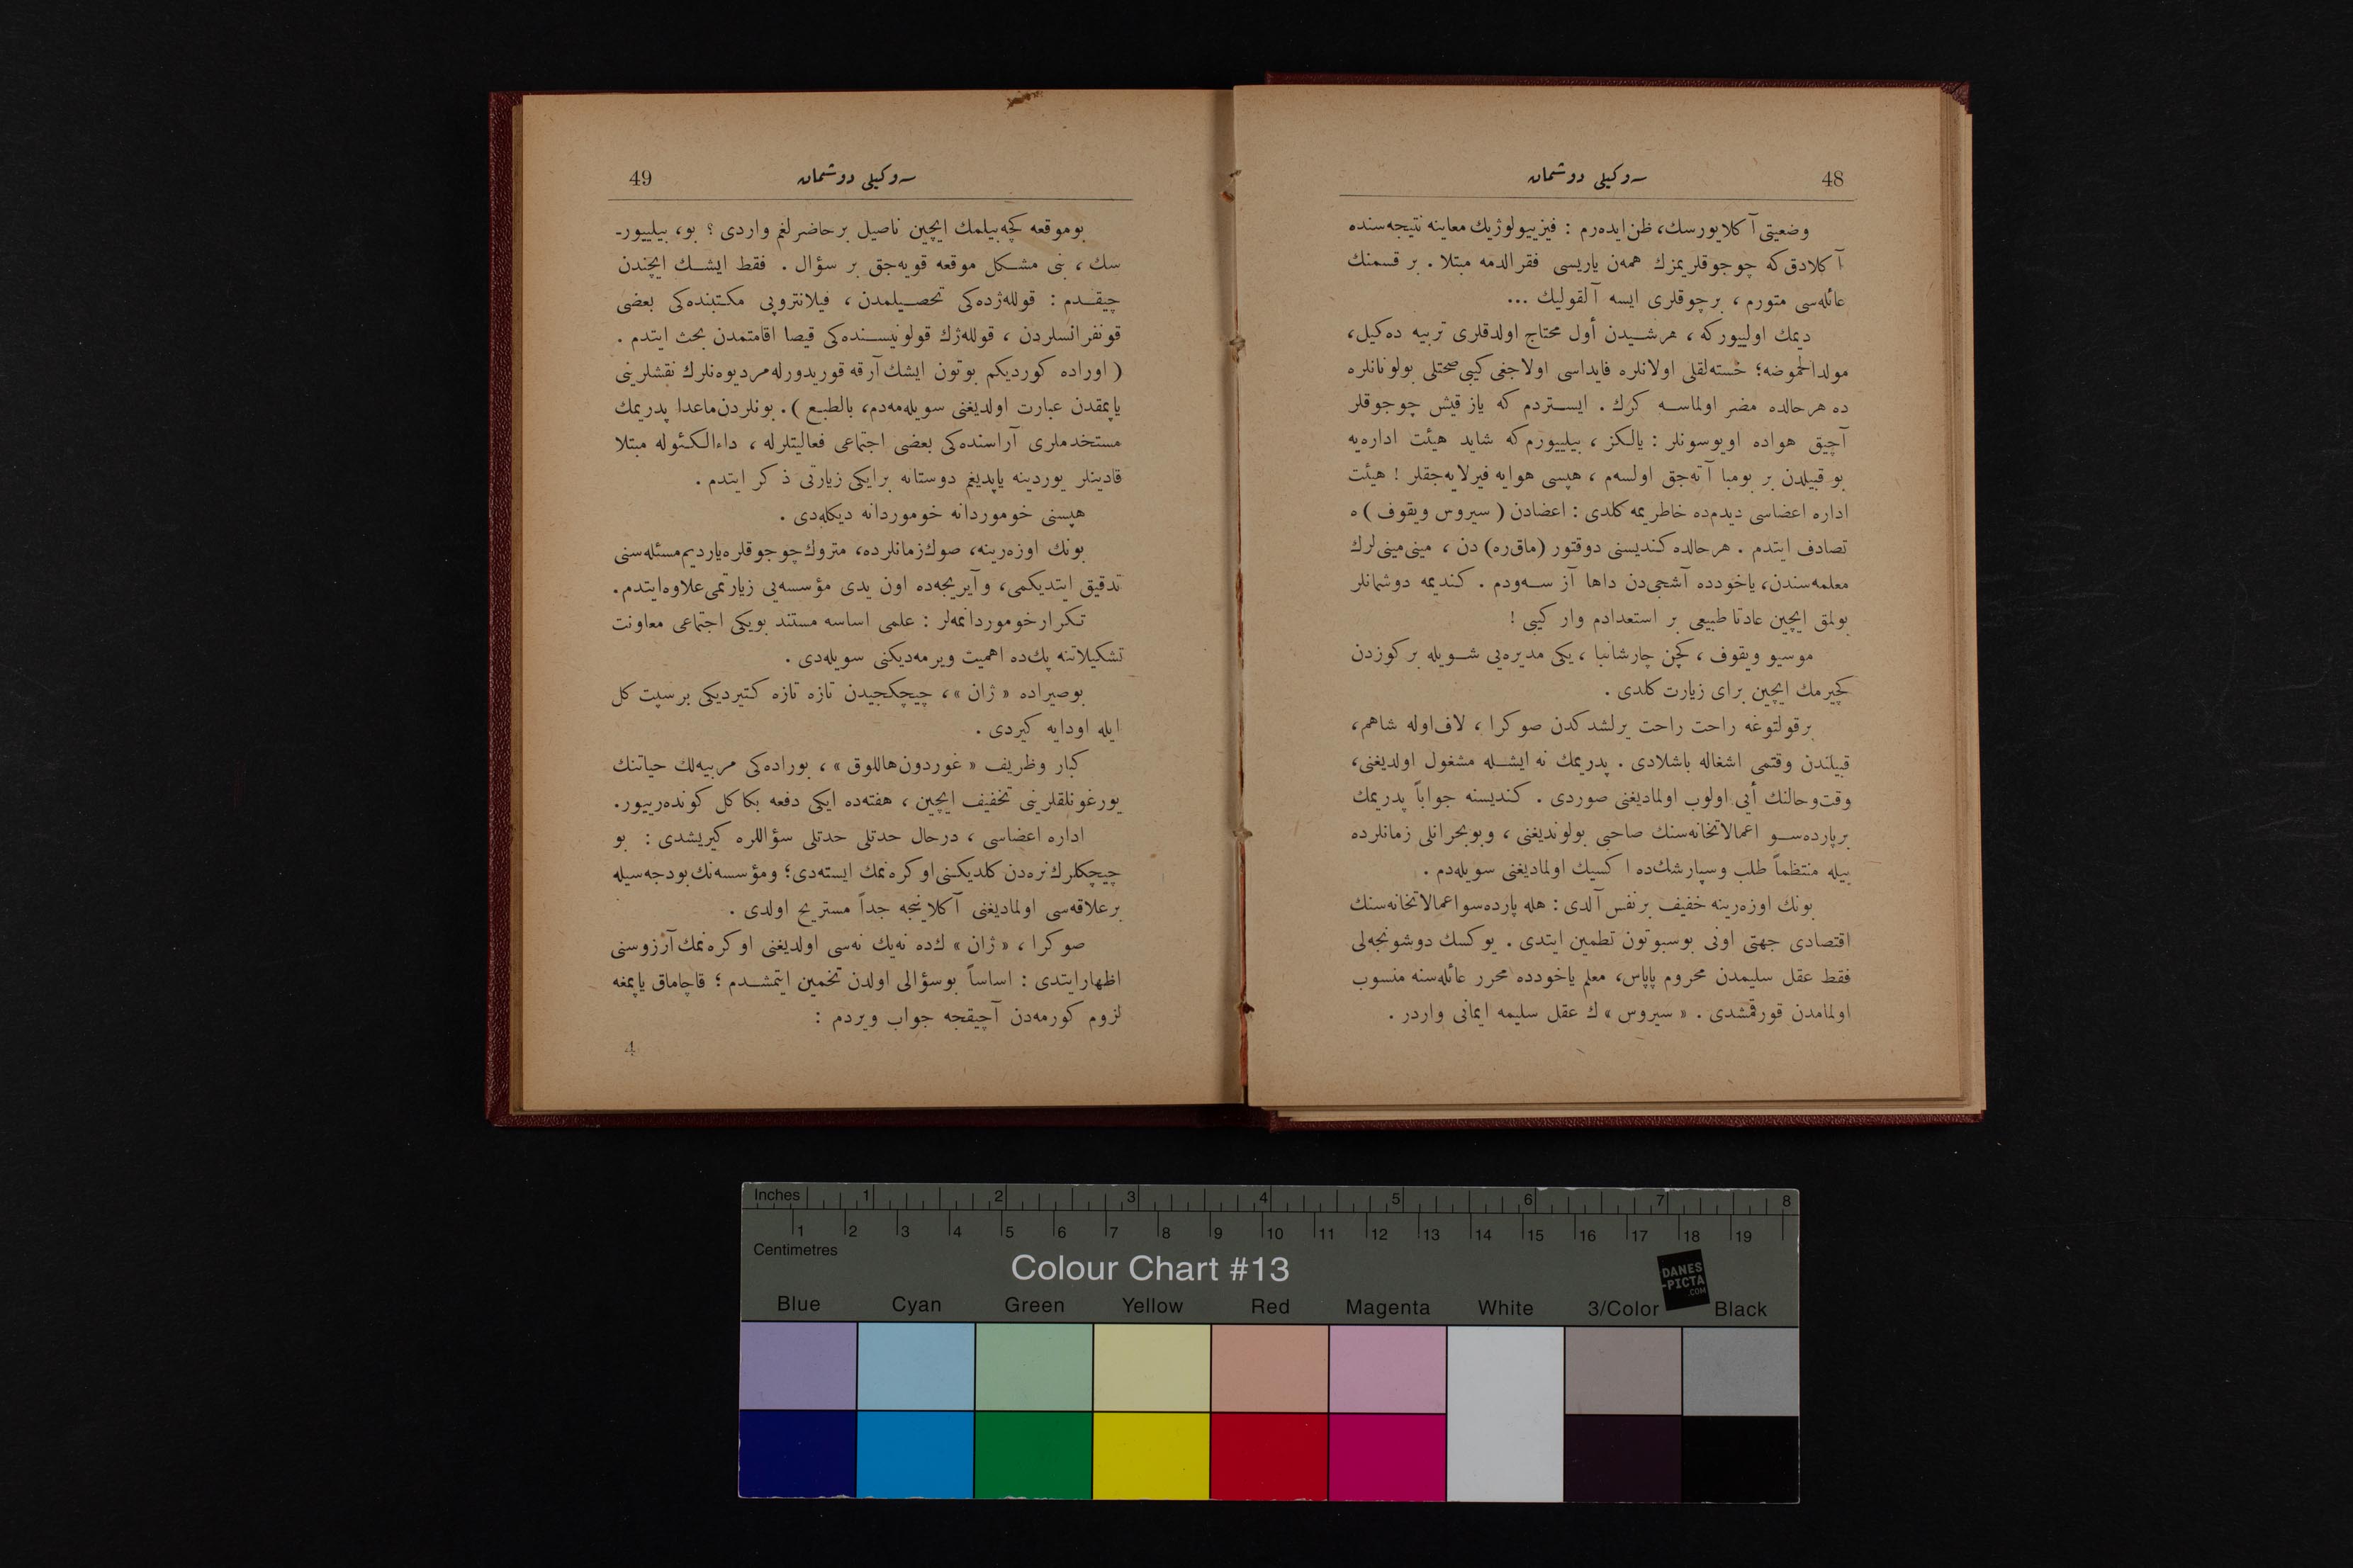 48
سوكیلی دوشمان
وضعیتی آكلایورسك، ظن ایده‌رم : فیزییولوژیك معاینه نتیجه‌سنده
آكلادق كه چوجوقلریمزك همه‌ن یاریسی فقرالدمه مبتلا . بر قسمنك
عائله‌سی متورم ، برچوقلری ایسه آلقولیك ...
دیمك اولییوركه ، هرشیدن أول محتاج اولدقلری تربیه ده‌كیل،
مولدالحموضه؛ خسته‌لقلی اولانلره فایداسی اولاجغی كیبی صحتلی بولونانلره
ده هرحالده مضر اولماسه كرك . ایستردم كه یاز قیش چوجوقلر
آچیق هواده اویوسونلر : یالكز ، بیلییورم‌كه شاید هیئت اداره‌یه
بو قبیلدن بر بومبا آته‌جق اولسه‌م ، هپسی هوایه فیرلایه‌جقلر ! هیئت
اداره اعضاسی دیدم‌ده خاطریمه كلدی : اعضادن ( سیروس ویقوف ) ه
تصادف ایتدم . هرحالده كندیسنی دوقتور (ماق‌ره) دن ، مینی‌مینی‌لرك
معلمه‌سندن، یاخودده آشجی‌دن داها آز سه‌ودم . كندیمه دوشمانلر
بولمق ایچین عادتا طبیعی بر استعدادم وار كیبی !
موسیو ویقوف ، كچن چارشانبا ، یكی مدیره‌یی شویله بر كوزدن
كچیرمك ایچین برای زیارت كلدی .
برقولتوغه راحت راحت یرلشدكدن صوكرا ، لاف‌اوله شاهم،
قبیلندن وقتمی اشغاله باشلادی . پدریمك نه ایشله مشغول اولدیغنی،
وقت‌وحالنك أیی اولوب اولمادیغنی صوردی . كندیسنه جواباً پدریمك
برپارده‌سو اعمالاتخانه‌سنك صاحبی بولوندیغنی ، وبوبحرانلی زمانلرده
بیله منتظماً طلب وسپارشك‌ده اكسیك اولمادیغنی سویله‌دم .
بونك اوزه‌رینه خفیف برنفس آلدی : هله پارده‌سواعمالاتخانه‌سنك
اقتصادی جهتی اونی بوسبوتون تطمین ایتدی . یوكسك دوشونجه‌لی
فقط عقل سلیمدن محروم پاپاس، معلم یاخودده محرر عائله‌سنه منسوب
اولمامدن قورقمشدی . « سیروس » ك عقل سلیمه ایمانی واردر .
49
سوكیلی دوشمان
بوموقعه كچه‌بیلمك ایچین ناصیل برحاضرلغم واردی ؟ بو، بیلییور-
سك ، بنی مشكل موقعه قویه‌جق بر سؤال . فقط ایشك ایچندن
چیقدم : قولله‌ژده‌كی تحصیلمدن ، فیلانتروپی مكتبنده‌كی بعضی
قونفرانسلردن ، قولله‌ژك قولونیسنده‌كی قیصا اقامتمدن بحث ایتدم .
( اوراده كوردیكم بوتون ایشك آرقه قوریدورله مردیوه‌نلرك نقشلرینی
یاپمقدن عبارت اولدیغنی سویله‌مه‌دم، بالطبع ) . بونلردن‌ماعدا پدریمك
مستخدملری آراسنده‌كی بعضی اجتماعی فعالیتلرله ، داءالكئوله مبتلا
قادینلر یوردینه یاپدیغم دوستانه برایكی زیارتی ذكر ایتدم .
هپسنی خوموردانه خوموردانه دیكله‌دی .
بونك اوزه‌رینه، صوك‌زمانلرده، متروك‌چوجوقلره‌یاردیم‌مسئله‌سنی
تدقیق ایتدیكمی، وآیریجه‌ده اون یدی مؤسسه‌یی زیارتمی‌علاوه‌ایتدم.
تكرارخوموردانمه‌لر : علمی اساسه مستند بویكی اجتماعی معاونت
تشكیلاتنه پك‌ده اهمیت ویرمه‌دیكنی سویله‌دی .
بوصیراده « ژان »، چیچكجیدن تازه تازه كتیردیكی برسپت كل
ایله اودایه كیردی .
كبار وظریف « غوردون‌هاللوق » ، بوراده‌كی مربیه‌لك حیاتنك
یورغونلقلرینی تخفیف ایچین ، هفته‌ده ایكی دفعه بكا كل كونده‌رییور.
اداره اعضاسی ، درحال حدتلی حدتلی سؤاللره كیریشدی : بو
چیچكلرك نره‌دن كلدیكنی اوكره‌نمك ایسته‌دی؛ ومؤسسه‌نك‌بودجه‌سیله
برعلاقه‌سی اولمادیغنی آكلاینجه جداً مستریح اولدی .
صوكرا ، « ژان » ك‌ده نه‌یك نه‌سی اولدیغنی اوكره‌نمك آرزوسنی
اظهارایتدی : اساساً بوسؤالی اولدن تخمین ایتمشدم ؛ قاچاماق یاپمغه
لزوم كورمه‌دن آچیقجه جواب ویردم :
4
Inches 1 2 3 4 5 6 7 8
1 2 3 4 5 6 7 8 9 10 11 12 13 14 15 16 17 18 19
Centimetres
Colour Chart #13
DANES
-PICTA
.COM
Blue Cyan Green Yellow Red Magenta White 3/Color Black